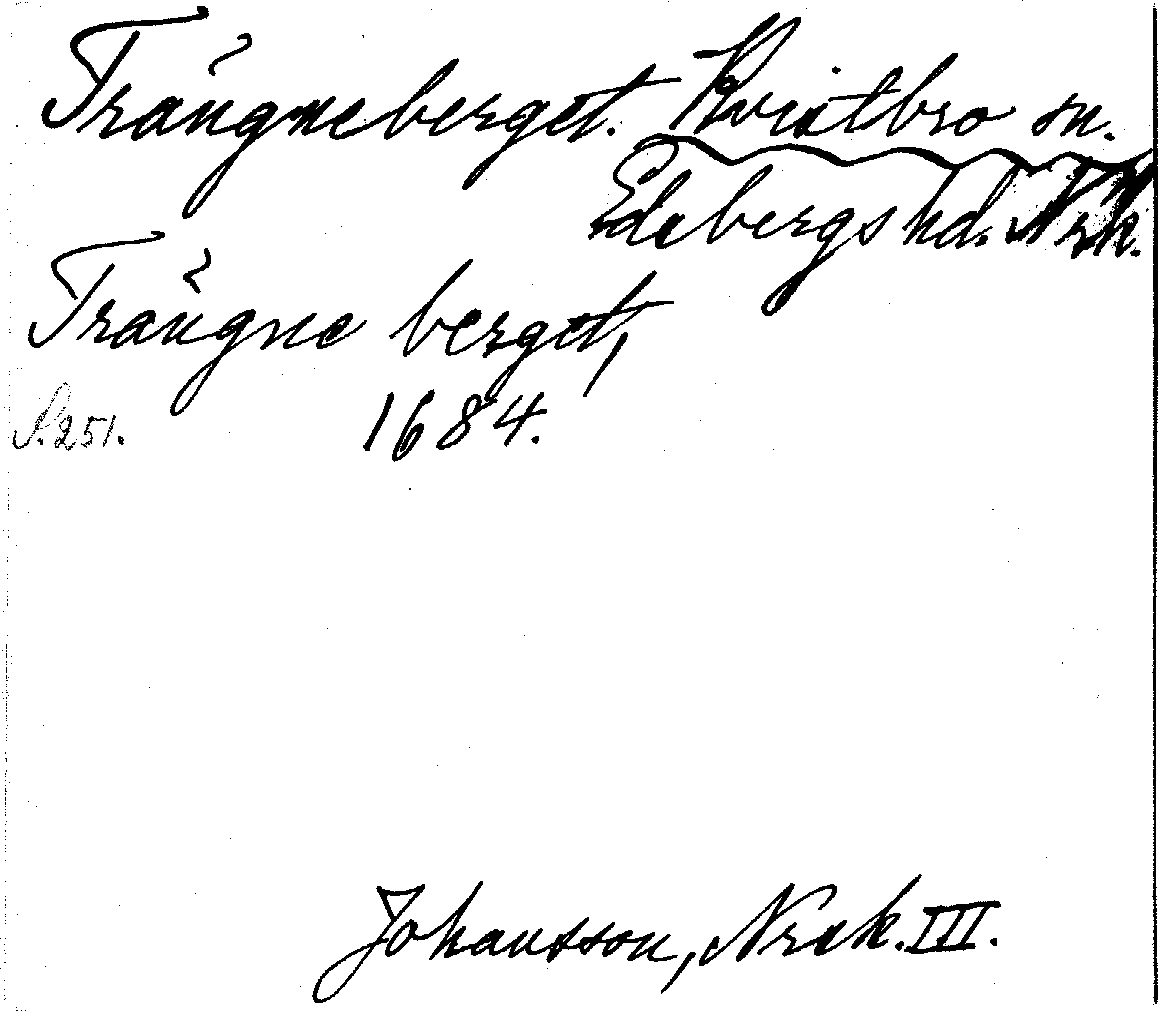 Trångneberget. Kvistbro sn.
Edsbergs hd. Nrk.
Trångne berget,
1684.
S. 251.
Johansson, Nrck. III.